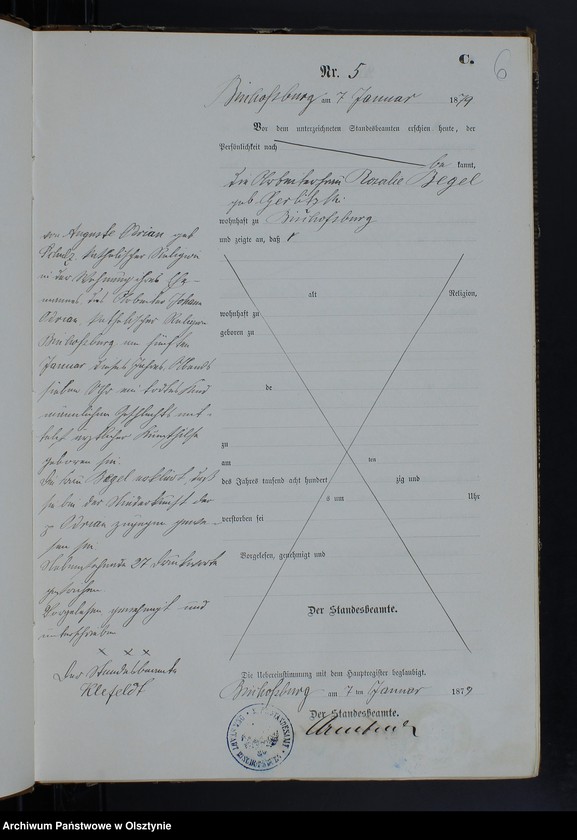 C.
6
Nr. 5
Bischofsburg am 7 Januar 1879
Vor dem unterzeichneten Standesbeamten erschien heute, der
Persönlichkeit nach
be kannt,
die Arbeiterfrau Rosalie Begel
geb. Gerlitzki
wohnhaft zu Bischofsburg
und zeigte an, daß
von Auguste Adrian geb
katholischer Religion
in der Wohnung ihres Ehe-
mannes des Arbeiter Johann
Adrian, katholischer Religion
Bischofsburg am fünften
Januar dieses Jahres Abends
sieben Uhr ein todtes Kind
männlichen Geschlechts mit-
telst ärztlicher Kunsthilfe
geboren sei.
Die Frau Begel erklärt, daß
sie bei der Niederkunft der
p Adrian zugegen gewe-
sen sei.
Nebenstehende 27 Druckworte
gestrichen.
Vorgelesen genehmigt und
unterschrieben
x x x
Der Standesbeamte
Klefeldt
alt
Religion,
wohnhaft zu
geboren zu
de
zu
am
ten
des Jahres tausend acht hundert
zig und
s um
Uhr
verstorben sei
Vorgelesen, genehmigt und
Der Standesbeamte.
Die Uebereinstimmung mit dem Hauptregister beglaubigt.
Bischofsburg am 7 ten Januar 1879
Der Standesbeamte.
Archiwum Państwowe w Olsztynie